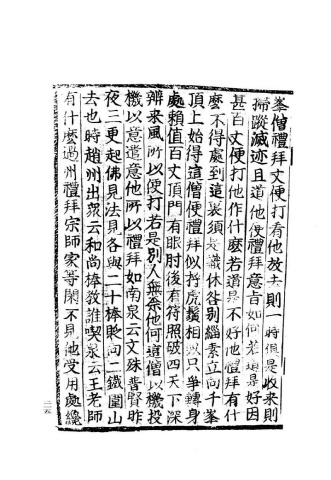 峯僧禮拜丈便打看他放去則一時俱是收來則
掃蹤滅迹且道他便禮拜意旨如何若道是好因
甚百丈便打他作什麼若道是不好他禮拜有什
麼不得處到這裏須是識休咎別緇素立向千峯
頂上始得這僧便禮拜似捋虎鬚相似只爭轉身
處賴值百丈頂門有眼肘後有符照破四天下深
辨來風所以便打若是別人無奈他何這僧以機投
機以意遣意他所以禮拜如南泉云文殊普賢昨
夜三更起佛見法見各與二十棒貶向二鐵圍山
去也時趙州出衆云和尚棒教誰喫泉云王老師
有什麼過州禮拜宗師家等閑不見他受用處纔